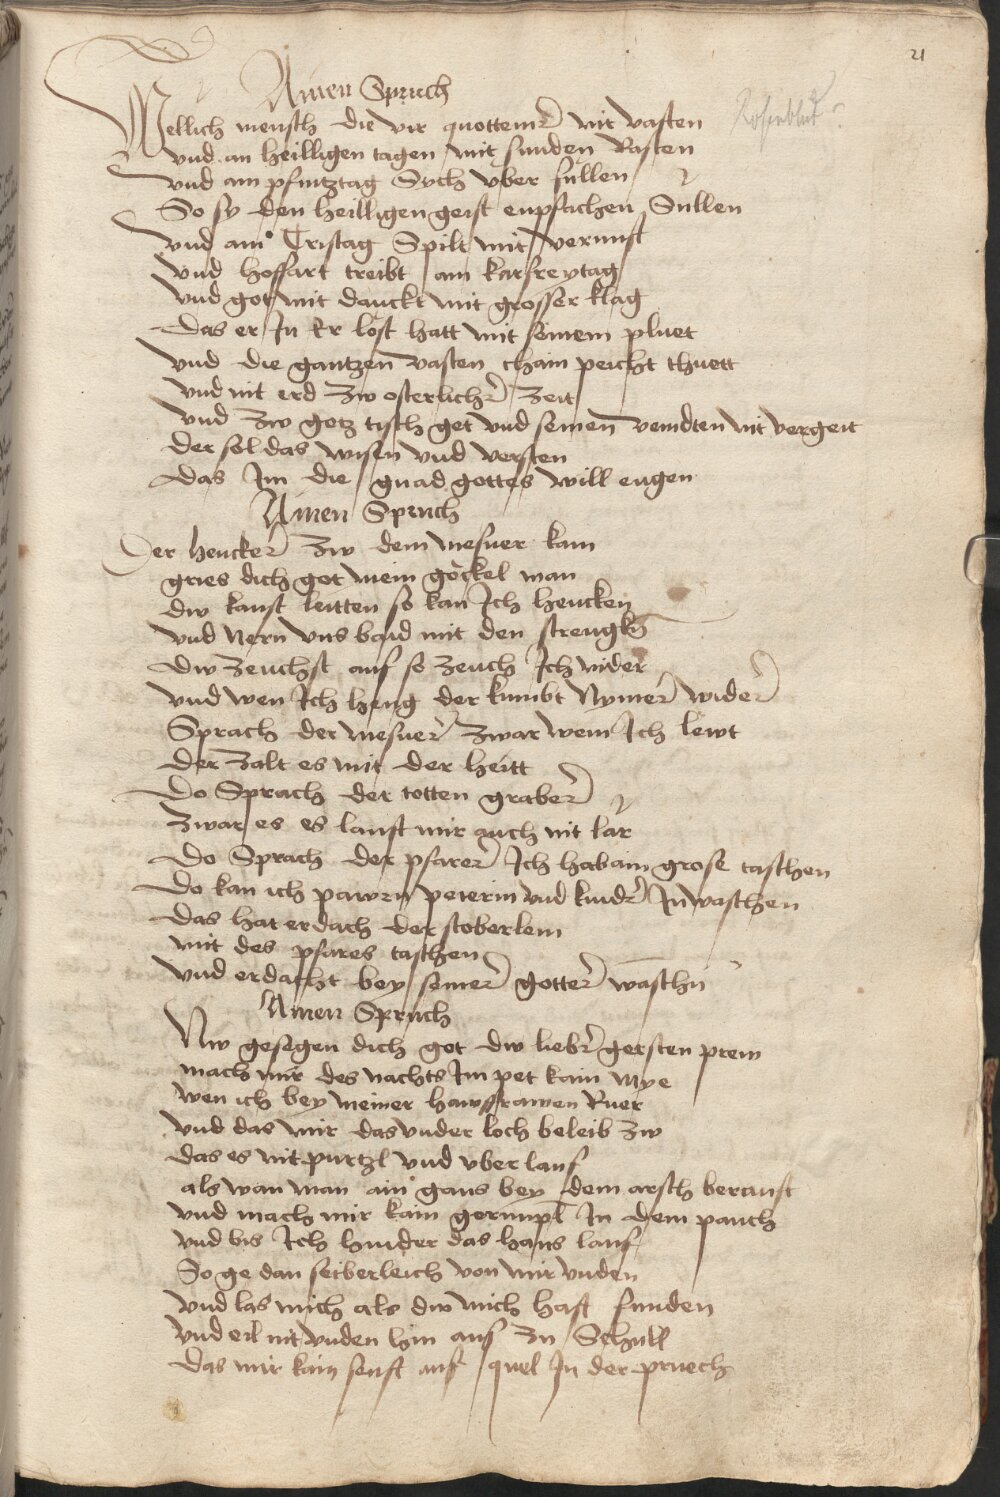 21
Ainen Spruch
Rosenblut ?
Wellich mensch die vir quottemer nit vasten
vnd an heilligen tagen mit sunden Rasten
vnd am pfintztag Sych vber fullen
So sy den heilligen geist enpfachen Süllen
vnd am Cristag Spilt mit vernunft
vnd hoffart treibt am karfreytag
vnd got nit danckt mit grosser klag
Das er In Er lost hatt mit seinem pluet
vnd die gantzen vasten chain peicht thuett
vnd nit erd zw osterlicher zeit
vnd zw gotz tisch get vnd seinen veindten nit vergeit
der sol das wisen vnd versten
das Im die gnad gottes will engen
Ainen Spruch
Der hencker zw dem mesner kam
gries dich got mein göckel man
dw kanst leitten so kan Ich hencken
vnd Nern vns baid mit den strengken
dw zeuchst auf so zeuch Ich nider
vnd wen Ich heng der kumbt Nymer wider
Sprach der mesner zwar wem Ich lewt
der zalt es mit der heitt
Do Sprach der totten graber
zwar es es lauft mir auch nit lar
Do Sprach der pfarer Ich hab ain grose taschen
Do kan ich pawrn peierin vnd kinder In waschen
das hat erdach der stoberlein
mit des pfares taschen
vnd erdacht bey seiner gotter waschn
Ainen Spruch
Nw gesegen dich got dw lieber gersten prein
mach mir des nachts Im pet kain mye
wen ich bey meiner hawsfrawen Ruer
vnd das mir das vnder loch beleib zw
das es nit purtzl vnd vber lauf
als wan man ain gans bey dem arsch berauft
vnd mach mir kain gerumpl In dem pauch
vnd bis Ich hinder das haus lauf
So ge dan seiberleich von mir vnden
vnd las mich als dw mich hast funden
vnd eil nit vnden hin aus zu Schnell
das mir kain senft auf quel In der pruech